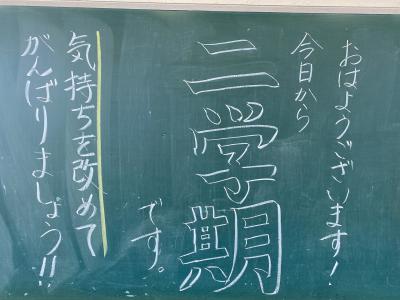 おはようございます!
今日から
二学期
です。
気持ちを改めて
がんばりましょう!!